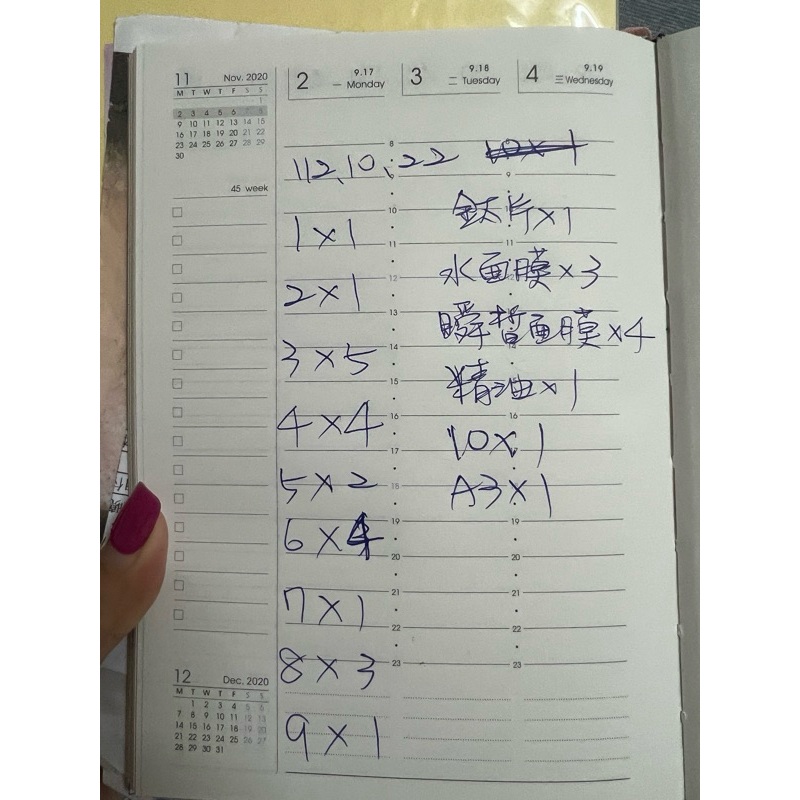 11 Nov. 2020
M T W T F S S
1
2 3 4 5 6 7 8
9 10 11 12 13 14 15
16 17 18 19 20 21 22
23 24 25 26 27 28 29
30
45 week
12 Dec. 2020
M T W T F S S
1 2 3 4 5 6
7 8 9 10 11 12 13
14 15 16 17 18 19 20
21 22 23 24 25 26 27
28 29 30 31
2 9.17 一 Monday
3 9.18 二 Tuesday
4 9.19 三 Wednesday
112、10、22
1×1
2×1
3×5
4×4
5×2
6×4
7×1
8×3
9×1
8
9
10
11
12
13
14
15
16
17
18
19
20
21
22
23
10×1
鈦片×1
水面膜×3
瞬皙面膜×4
精油×1
10×1
A3×1
9
11
16
19
20
21
22
23